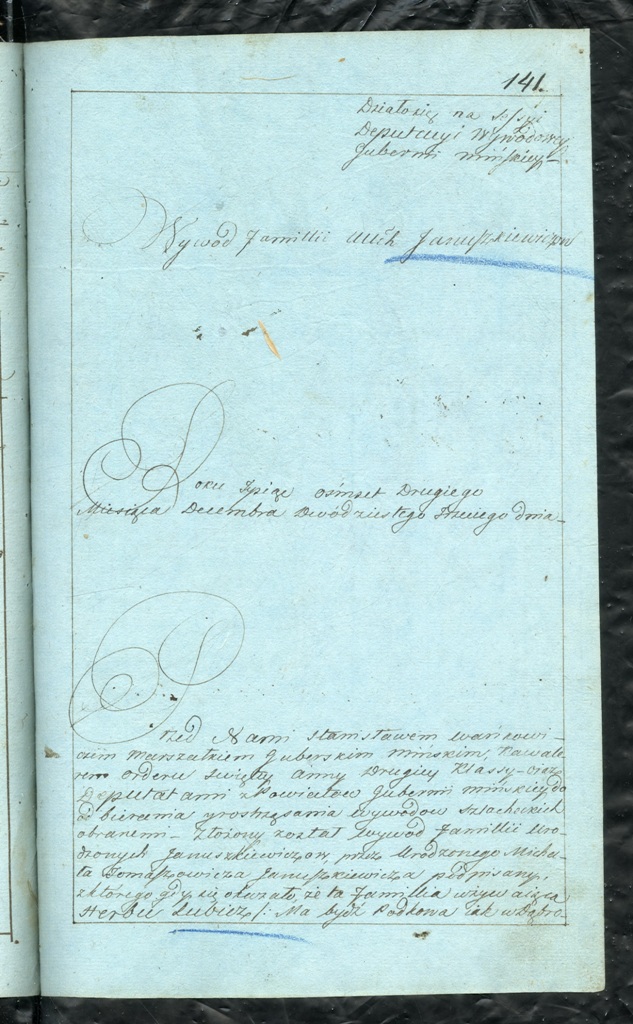 141.
Działosię na Sessyi
Deputacyi Wywodowey
Gubernii mińskiey
Wywod Familii Urch Januszkiewiczow
Roku Tysiąc ośmset Drugiego
Miesiąca Decembra Dwódziestego Trzeciego dnia
Przed Nami Stanisławem Wańkowi-
czem Marszałkiem Guberskim Mińskim, Kawale
rem orderu Swiętey Anny Drugiey Klassy oraz
Deputatami z Powiatow Gubernii mińskiey do
od bierania y roztrząsania wywodow szlacheckich
obranemi Złożony został Wywod Familii Uro-
dzonych Januszkiewiczow, przez Urodzonego Micha-
ła Tomaszowicza Januszkiewicza podpisany,
z którego gdy się okazało, że ta Familia używaiąca
Herbu Lubicz /: Ma bydź Podkowa iak w Dąbro